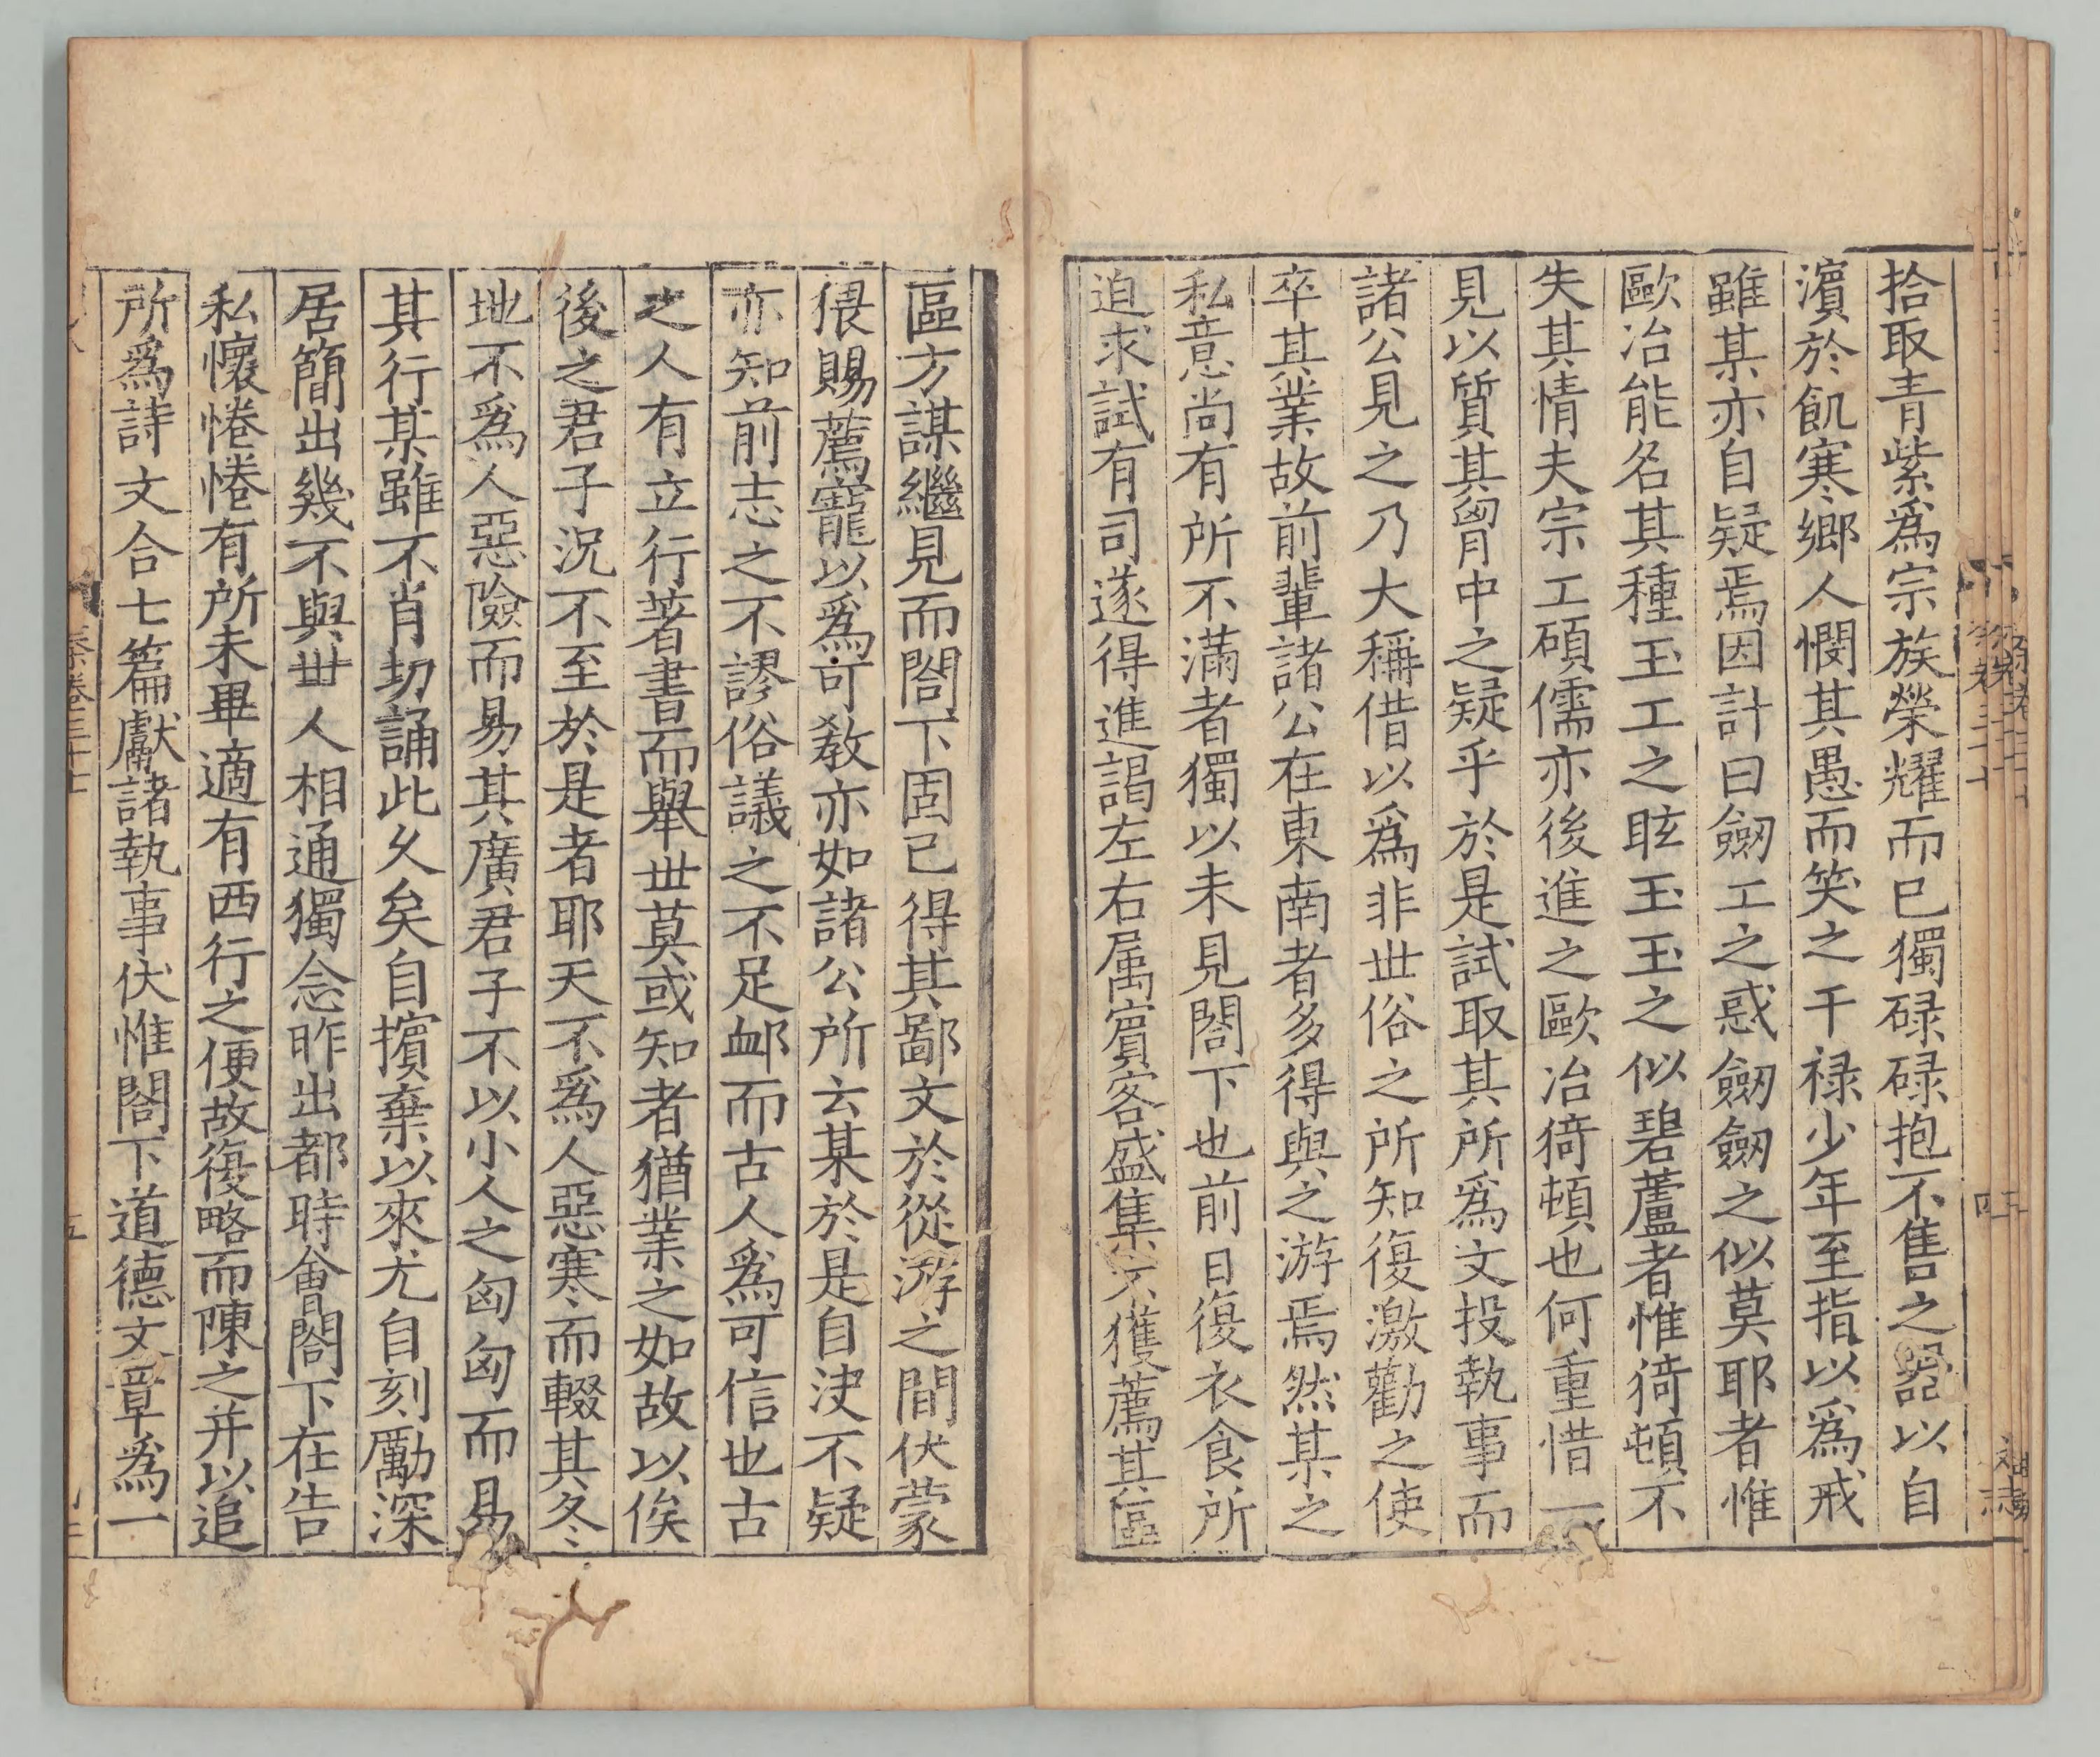 拾取青紫爲宗族榮耀而已獨碌碌抱不售之器以自
濵於飢寒鄉人憫其愚而笑之干禄少年至指以爲戒
雖某亦自疑焉因計曰劒工之惑劒劒之似莫耶者惟
歐冶能名其種玉工之眩玉玉之似碧蘆者惟猗頓不
失其情夫宗工碩儒亦後進之歐冶猗頓也何重惜一
見以質其胷中之疑乎於是試取其所爲文投執事而
諸公見之乃大稱借以爲非丗俗之所知復激勸之使
卒其業故前輩諸公在東南者多得與之游焉然某之
私意尚有所不滿者獨以未見閤下也前日復衣食所
迫求試有司遂得進謁左右属賓客盛集不獲薦其區
區方謀繼見而閤下固已得其鄙文於從游之間伏蒙
猥賜薦寵以爲可敎亦如諸公所云某於是自決不疑
亦知前志之不謬俗議之不足䘏而古人爲可信也古
之人有立行著書而舉丗莫或知者猶業之如故以俟
後之君子況不至於是者耶天不爲人惡寒而輟其冬
地不爲人惡險而易其廣君子不以小人之匈匈而易
其行某雖不肖切誦此久矣自擯棄以來尤自刻勵深
居簡出幾不與丗人相通獨念昨出都時會閤下在告
私懷惓惓有所未畢適有西行之便故復略而陳之并以追
所爲詩文合七篇獻諸執事伏惟閤下道德文章爲一
秦卷三十七
五